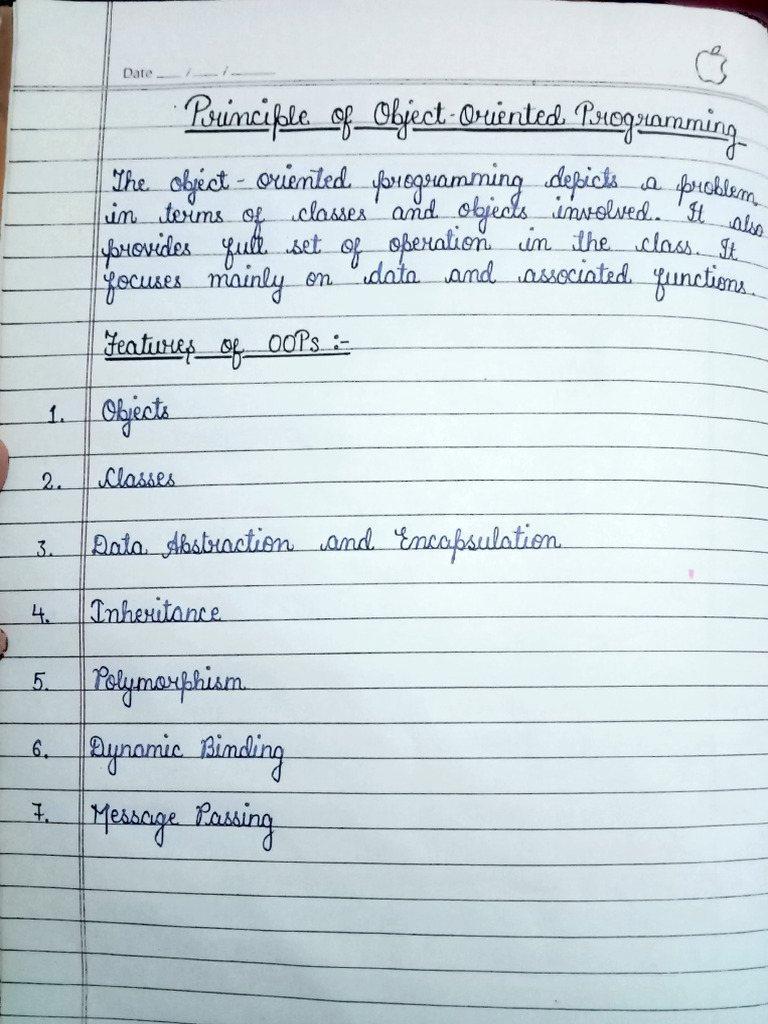 Date __ / __ / ____
Principle of Object-Oriented Programming
The object-oriented programming depicts a problem
in terms of classes and objects involved. It also
provides full set of operation in the class. It
focuses mainly on data and associated functions.
Features of OOPs :-
1. Objects
2. Classes
3. Data Abstraction and Encapsulation
4. Inheritance
5. Polymorphism
6. Dynamic Binding
7. Message Passing